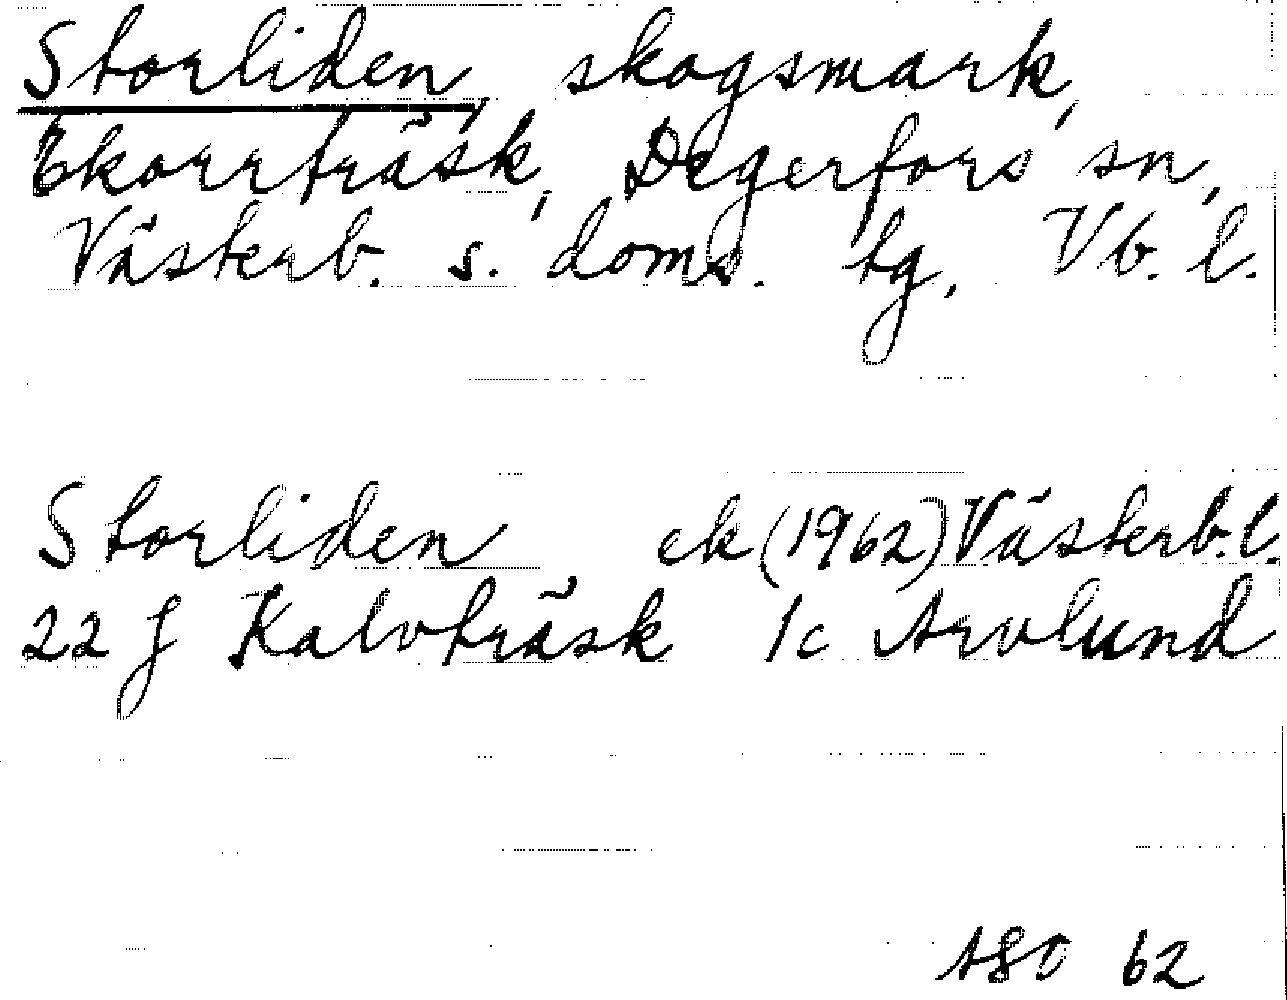 Storliden, skogsmark,
Ekorrträsk, Degerfors sn,
Västerb. s. doms. tg, Vb. l.
Storliden ek (1962) Västerb. l.
22 J Kalvträsk 1c Arvlund
62